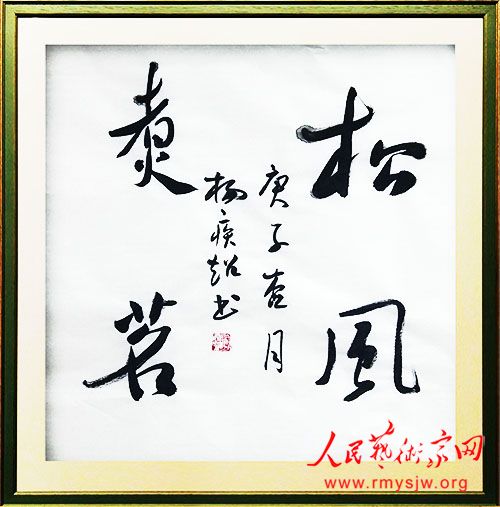 松風
煑茗
庚子杏月
杨超书
人民藝術家网
www.rmysjw.org